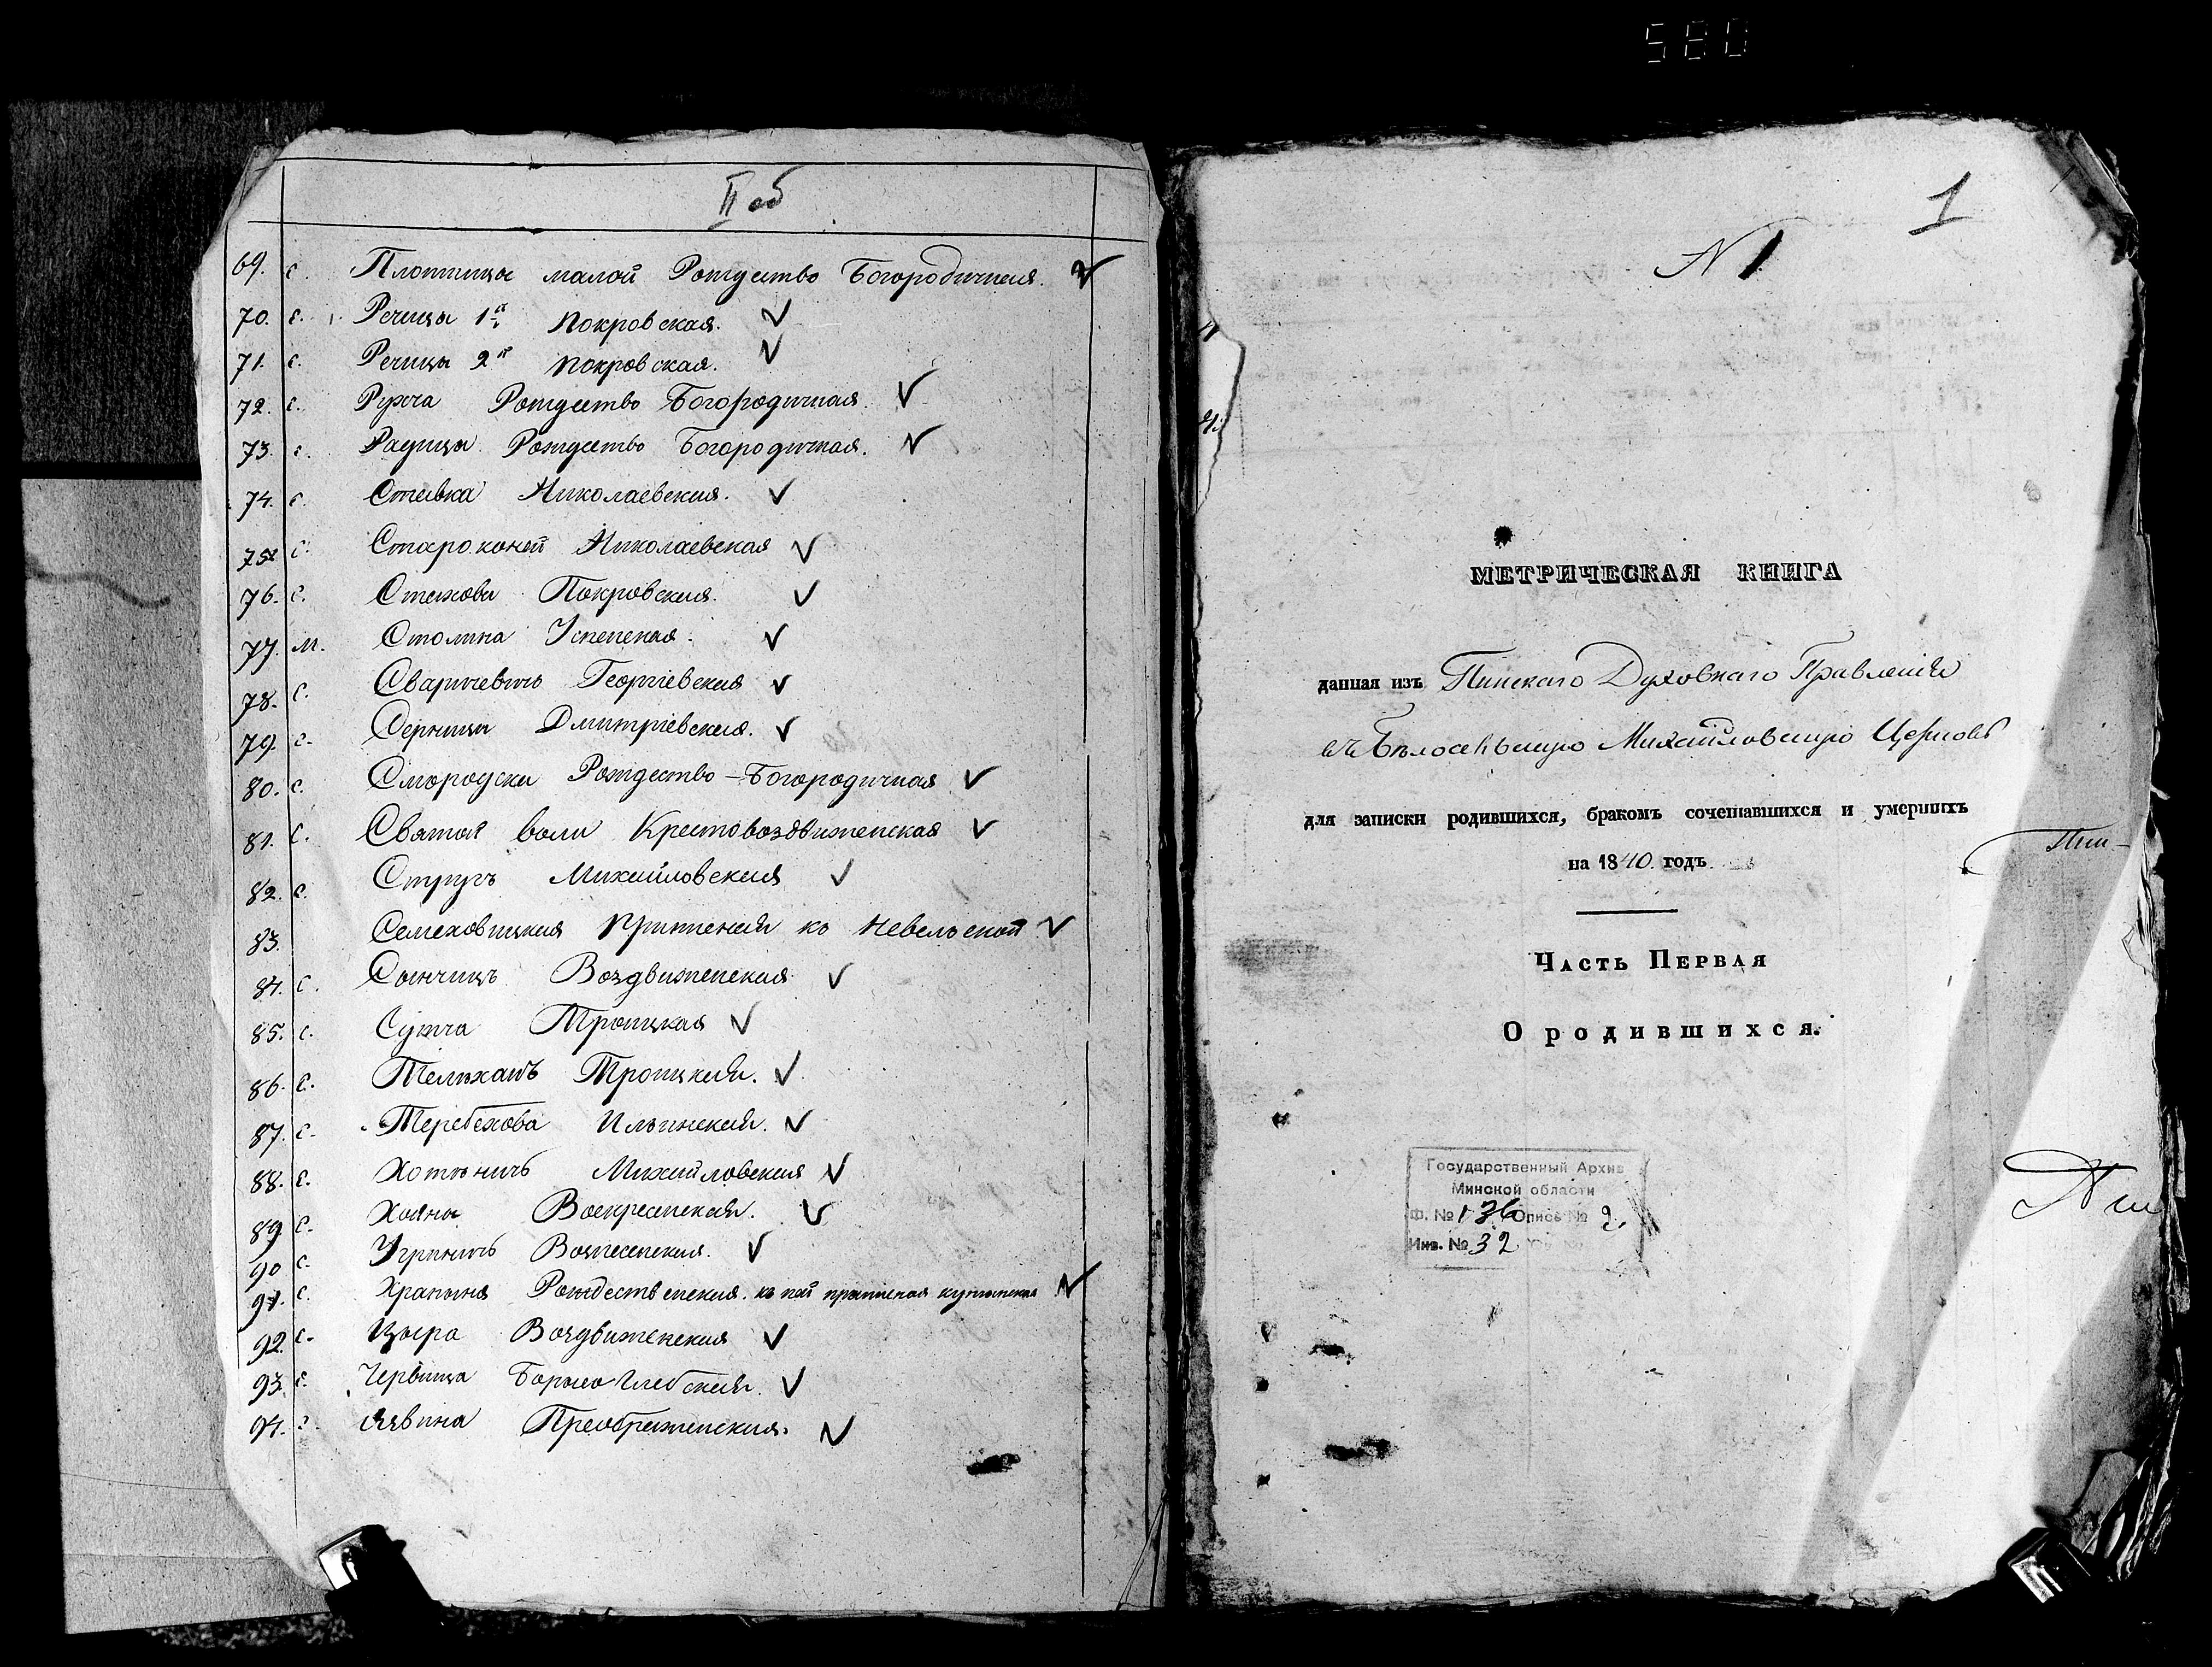 580
II об
69. с. Плотницы малой Рождество Богородичная.
70. с. Речицы 1я Покровская.
71. с. Речицы 2я Покровская.
72. с. Ручча Рождество Богородичная
73. с. Радчицы Рождество Богородичная.
74. с. Ставка Николаевская.
75. с. Староконей Николаевская
76. с. Стахова Покровская.
77. м. Столина Успенская.
78. с. Сварычевичь Георгіевская
79. с. Серники Дмитріевская.
80. с. Смородска Рождество-Богородичная
81. с. Святой воли Крестовоздвиженская
82. с. Стругъ Михайловская
83. Семеховицкая приписная къ Невельской
84. с. Воздвиженская
85. с. Троицкая
86. с. Телеханъ Троицкая.
87. с. Теребехова Ильинская.
88. с. Хотыничь Михайловская
89. с. Хойна Воскресенская.
90 с. Угриничь Вознесенская.
91. с. Храпина Рождественская. къ ней приписная
92. с. Цыра Воздвиженская
93. с. Червища Борисо Глебская.
94. с. Язвина Преображенская.
1
N 1
МЕТРИЧЕСКАЯ КНИГА
данная изъ Пинскаго Духовнаго Правленія
въ Михайловскую Церковь
для записки родившихся, бракомъ сочетавшихся и умершихъ
на 1840. годъ
Пин-
Часть Первая
О родившихся.
Государственный Архив
Минской области
Ф. № 136 Опись № 2.
Инв. № 32